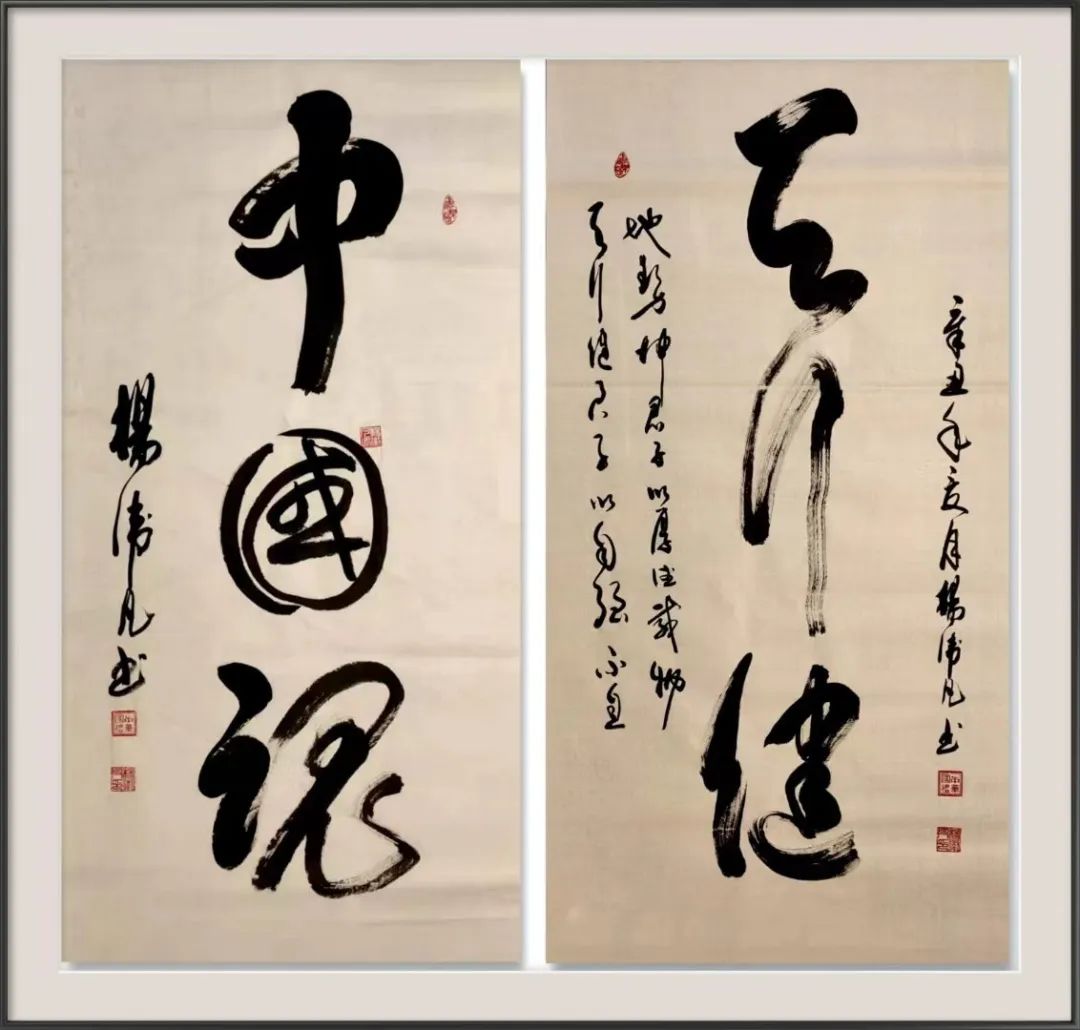 天行健
地势坤君子以厚德载物
天行健君子以自强不息
辛丑年夏月楊凡书
中國魂
楊凡书